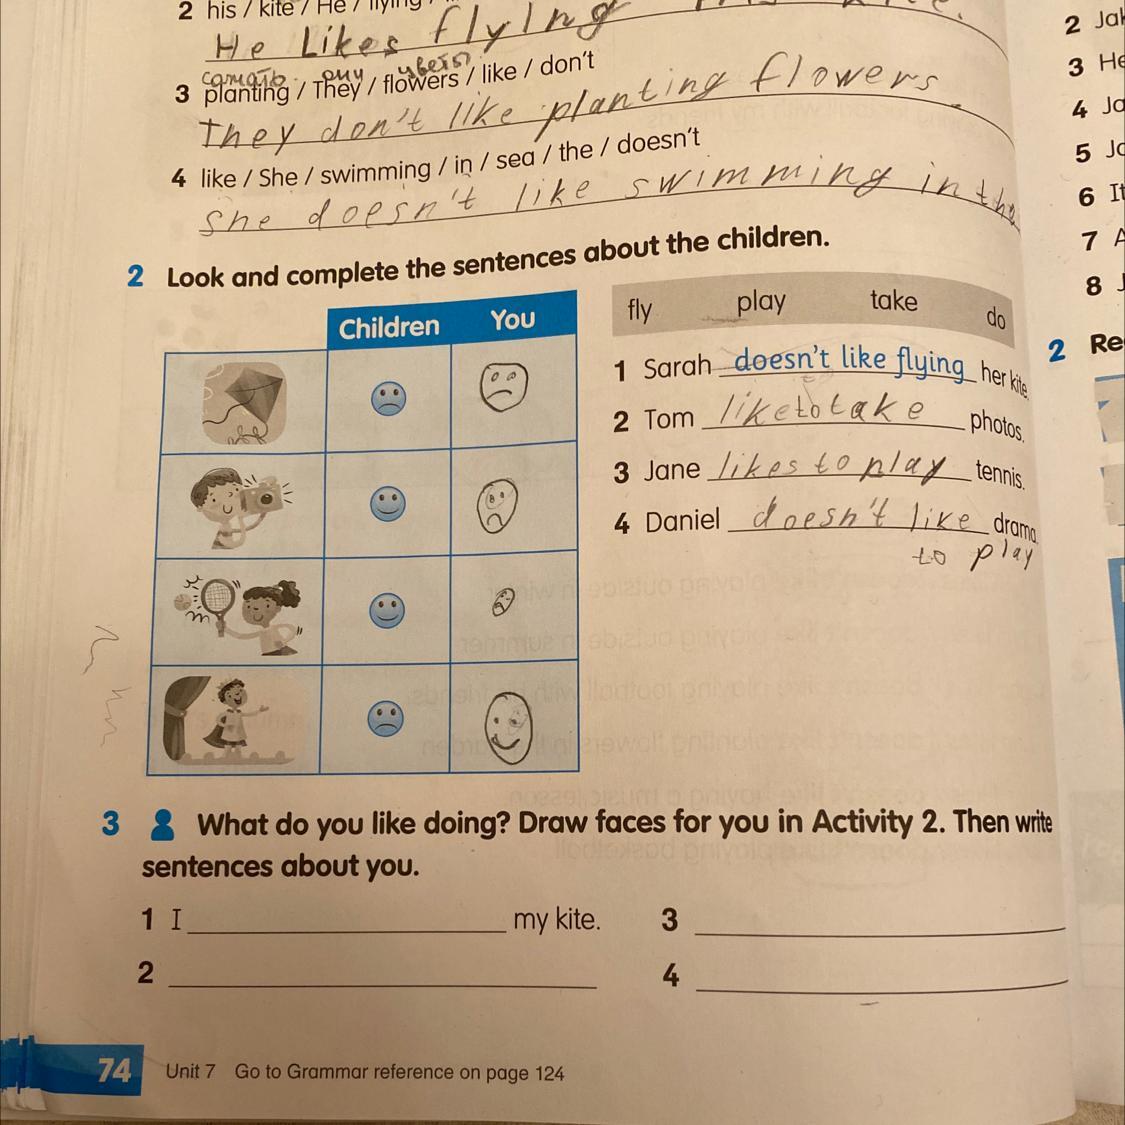 2 his / kite / He / flying /
He Likes flying
3 planting / They / flowers / like / don't
They don't like planting flowers
4 like / She / swimming / in / sea / the / doesn't
She doesn't like swimming in the
2 Look and complete the sentences about the children.
Children You
fly play take do
1 Sarah doesn't like flying her kite.
2 Tom like to take photos.
3 Jane likes to play tennis.
4 Daniel doesn't like drama.
to play
3 What do you like doing? Draw faces for you in Activity 2. Then write
sentences about you.
1 I my kite.
2
3
4
74 Unit 7 Go to Grammar reference on page 124
2 Jak
3 He
4 Ja
5 Jo
6 It
7 A
8 J
2 Re